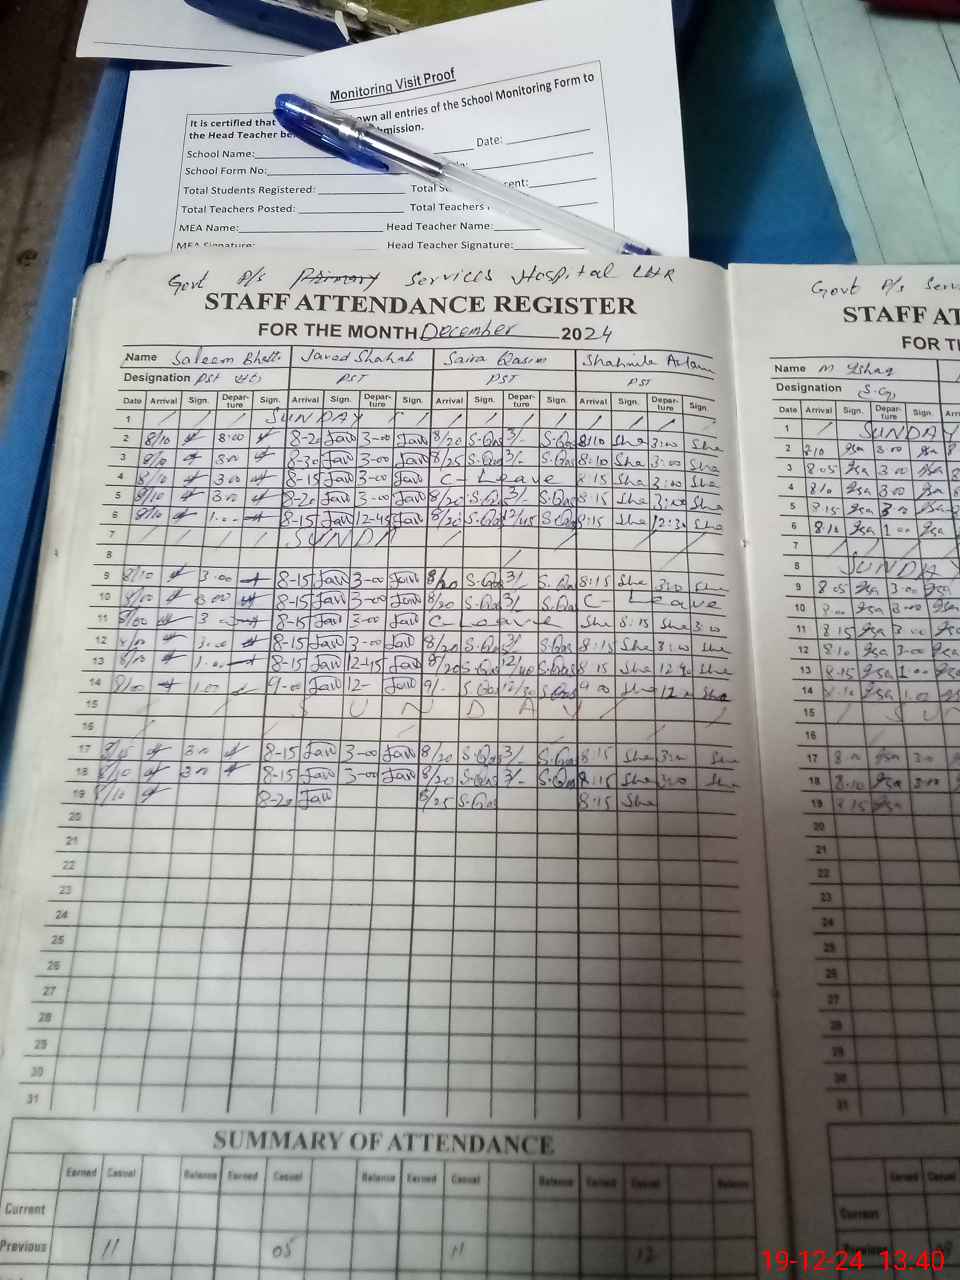 Monitoring Visit Proof
It is certified that own all entries of the School Monitoring Form to
the Head Teacher be mission.
School Name: Date:
School Form No:
Total Students Registered: Total S ent:
Total Teachers Posted: Total Teachers
MEA Name: Head Teacher Name:
MEA Signature: Head Teacher Signature:
Govt P/s Services Hospital LHR
STAFF ATTENDANCE REGISTER
FOR THE MONTH December 2024
Name Saleem Bhatti Javed Shahab Saira Qasim Shahnila Aslam
Designation PST PST PST PST
Date Arrival Sign. Departure Sign. Arrival Sign. Departure Sign. Arrival Sign. Departure Sign. Arrival Sign. Departure Sign.
1 SUNDAY
2 8/10 3.00 8-20 Jav 3-00 Jav 8/20 S.Qas 3/- S.Qas 8:10 She 3:00 She
3 8/10 3.00 8-20 Jav 3-00 Jav 8/25 S.Qas 3/- S.Qas 8:10 She 3:00 She
4 8/10 3.00 8-15 Jav 3-00 Jav C- Leave 8:15 She 3:00 She
5 8/10 3.00 8-20 Jav 3-00 Jav 8/20 S.Qas 3/- S.Qas 8:15 She 3:00 She
6 8/10 1.00 8-15 Jav 12-45 Jav 8/20 S.Qas 12/45 S.Qas 8:15 She 12:30 She
7 SUNDA
8
9 8/10 3.00 8-15 Jav 3-00 Jav 8/20 S.Qas 3/- S.Qas 8:15 She 3:00 She
10 8/00 3.00 8-15 Jav 3-00 Jav 8/20 S.Qas 3/- S.Qas C- Leave
11 8/00 3 8-15 Jav 3-00 Jav C- Leave She 8:15 She 3:00
12 3.00 8-15 Jav 3-00 Jav 8/20 S.Qas 3/- S.Qas 8:15 She 3:00 She
13 8/10 1.00 8-15 Jav 12-45 Jav 8/20 S.Qas 12/40 S.Qas 8:15 She 12:40 She
14 8/00 1.00 9-00 Jav 12- Jav 9/- S.Qas 12/30 S.Qas 9:00 She 12 She
15 SUNDAY
16
17 8/15 3.00 8-15 Jav 3-00 Jav 8/20 S.Qas 3/- S.Qas 8:15 She 3:00 She
18 8/10 3.00 8-15 Jav 3-00 Jav 8/20 S.Qas 3/- S.Qas 8:15 She 3:00 She
19 8/10 8-20 Jav 8/25 S.Qas 8:15 She
20
21
22
23
24
25
26
27
28
29
30
31
SUMMARY OF ATTENDANCE
Earned Casual Balance Earned Casual Balance Earned Casual Balance Earned Casual Balance
Current
Previous 11 05 11 12
Govt P/s Serv
STAFF AT
FOR TH
Name M Ishaq
Designation S.G
Date Arrival Sign. Departure Sign. Arrival
1 SUNDAY
2 8.10 3.00
3 8.05 3.00
4 8.10 3.00
5 8.15 3.00
6 8.10 1.00
7
8 SUNDAY
9 8.05 3.00
10 3.00
11 8.15 3.00
12 8.10 3.00
13 8.15 1.00
14 8.10 1.00
15 SUN
16
17 8.00 3.00
18 8.10 3.00
19 8.15
20
21
22
23
24
25
26
27
28
29
30
31
Earned Casual
Current
Previous
19-12-24 13.40